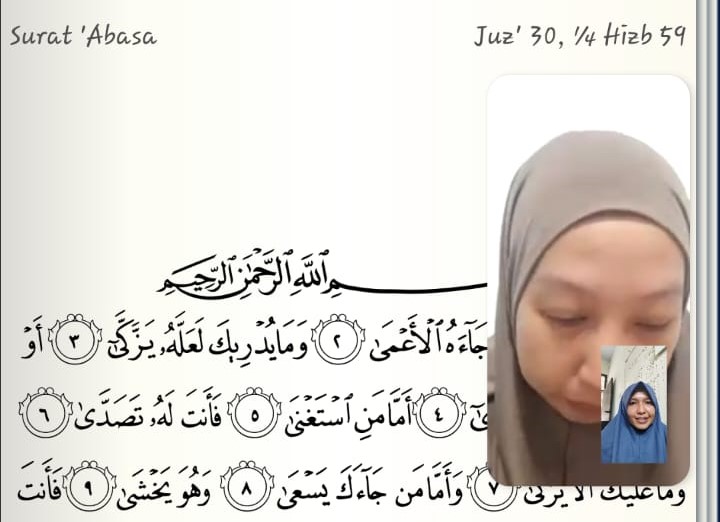 Surat 'Abasa
Juz' 30, ¼ Hizb 59
ـمِ ٱللَّهِ ٱلرَّحْمَٰنِ ٱلرَّحِيمِ
جَآءَهُ ٱلْأَعْمَىٰ ٢ وَمَا يُدْرِيكَ لَعَلَّهُۥ يَزَّكَّىٰٓ ٣ أَوْ
ٓىٰ ٤ أَمَّا مَنِ ٱسْتَغْنَىٰ ٥ فَأَنتَ لَهُۥ تَصَدَّىٰ ٦
وَمَا عَلَيْكَ أَلَّا يَزَّكَّىٰ ٧ وَأَمَّا مَن جَآءَكَ يَسْعَىٰ ٨ وَهُوَ يَخْشَىٰ ٩ فَأَنتَ